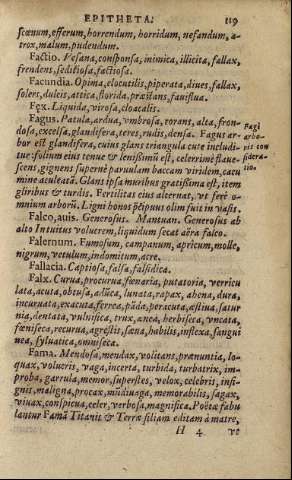 EPITHETA. 119
scœnum, efferum, horrendum, horridum, nefandum, a-
trox, malum, pudendum.
Factio. Vesana, consponsa, inimica, illicita, fallax,
frendens, seditiosa, factiosa.
Facundia. Opima, elocutilis, piperata, diues, fallax,
solers, dulcis, attica, florida, præstans, faustiua.
Fęx. Liquida, virosa, cloacalis.
Fagus. Patula, ardua, vmbrosa, rorans, alta, fron-
dosa, excelsa, glandifera, teres, rudis, densa. Fagus ar-
bor est glandifera, cuius glans triangula cute includi-
tur: folium eius tenue & leuissimũ est, celerrimè flaue-
scens, gignens superne paruulam baccam viridem, cacu
mine aculeatã. Glans ipsa muribus gratissima est, item
gliribus & turdis. Fertilitas eius alternat, vt ferè o-
mnium arborũ. Ligni honos pcipuus olim fuit in vasis.
Fagi
arbo-
ris con
sidera-
tio.
Falco, auis. Generosus. Mantuan. Generosus ab
alto Intuitus volucrem, liquidum secat aëra falco.
Falernum. Fumosum, campanum, apricum, molle,
nigrum, vetulum, indomitum, acre.
Fallacia. Captiosa, falsa, falsidica.
Falx. Curua, procurua, fœnaria, putatoria, verricu
lata, acuta, obtusa, aduca, lunata, rapax, ahena, dura,
incuruata, exacuta, ferrea, pãda, peracuta, æstiua, satur
nia, dentata, vulnifica, trux, ænea, herbiseca, vncata,
fœniseca, recurua, agrestis, sæua, habilis, inflexa, sangui
nea, syluatica, omniseca.
Fama. Mendosa, mendax, volitans, prænuntia, lo-
quax, volucris, vaga, incerta, turbida, turbatrix, im-
proba, garrula, memor, superstes, velox, celebris, insi-
gnis, maligna, procax, nũdiuaga, memorabilis, sagax,
viuax, conspicua, celer, verbosa, magnifica. Poëtæ fabu
lantur Famã Titanis & Terræ filiam editam à matre,
H 4 vt